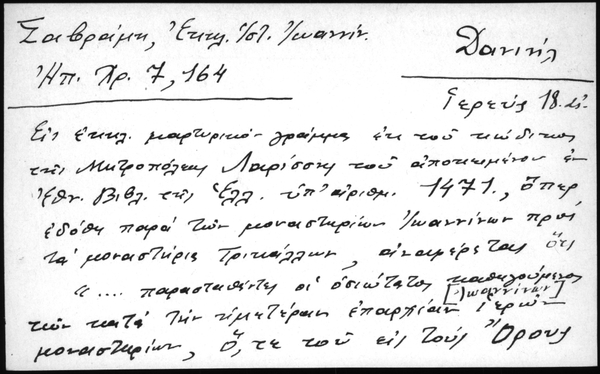 Σαβράμη, Ἐκκλ. Ἱστ. Ἰωαννίν.
Δανιήλ
Ἠπ. Χρ. 7, 164
Ἱερεύς 18. αἰ.
Εἰς ἐκκλ. μαρτυρικόν γράμμα ἐκ τοῦ κώδικος
τῆς Μητροπόλεως Λαρίσσης τοῦ ἀποκειμένου ἐν
Ἐθν. Βιβλ. τῆς Ἑλλ. ὑπ' ἀριθμ. 1471., ὅπερ
ἐδόθη παρά τῶν μοναστηρίων Ἰωαννίνων πρός
τά μοναστήρια Τρικάλλων, ἀναφέρεται ὅτι
".... παρασταθέντες οἱ ὁσιώτατοι καθηγούμενοι
[Ἰωαννίνων]
τῶν κατά τήν ἡμετέραν ἐπαρχίαν ἱερῶν
μοναστηρίων, ὅ, τε τοῦ εἰς τούς Ὄρους